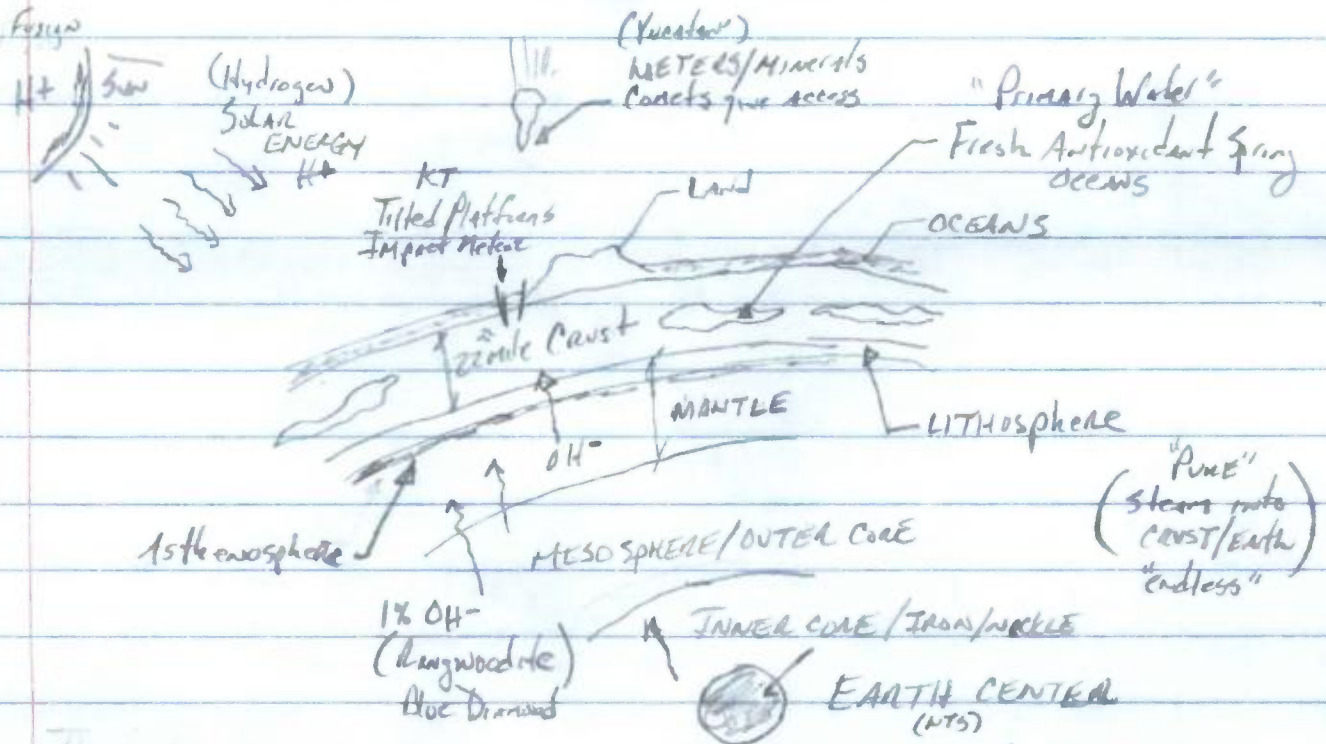 Fusion
H+
Sun
(Hydrogen)
SOLAR
ENERGY
H+
(Yucatan)
METERS/Minerals
Comets give Access
"Primary Water"
Fresh Antioxidant Spring
OCEANS
KT
Tilted Platforms
Impact Meteor
LAND
OCEANS
22 mile Crust
MANTLE
LITHOsphere
OH-
"PURE"
(Steam into
CRUST/Earth)
"endless"
Asthenosphere
MESOSPHERE/OUTER CORE
1% OH-
(Ringwoodite)
Blue Diamond
INNER CORE/IRON/NICKLE
EARTH CENTER
(NTS)